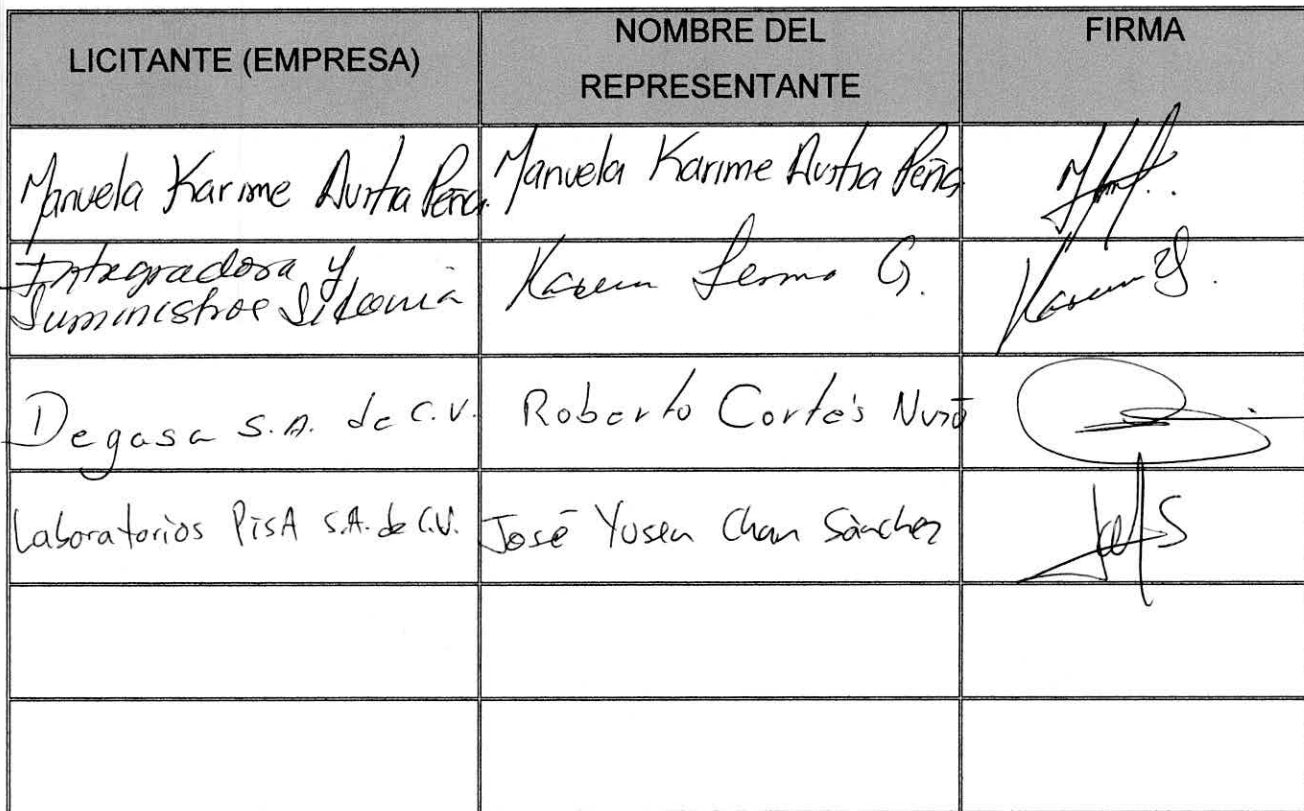 LICITANTE (EMPRESA)
NOMBRE DEL
REPRESENTANTE
FIRMA
Manuela Karime Austria Peña
Manuela Karime Austria Peña
Integradora y
Suministros
Karem Lerma G.
Degasa S.A. de C.V.
Roberto Cortés
Laboratorios PiSA S.A. de C.V.
José Yusen Chan Sánchez